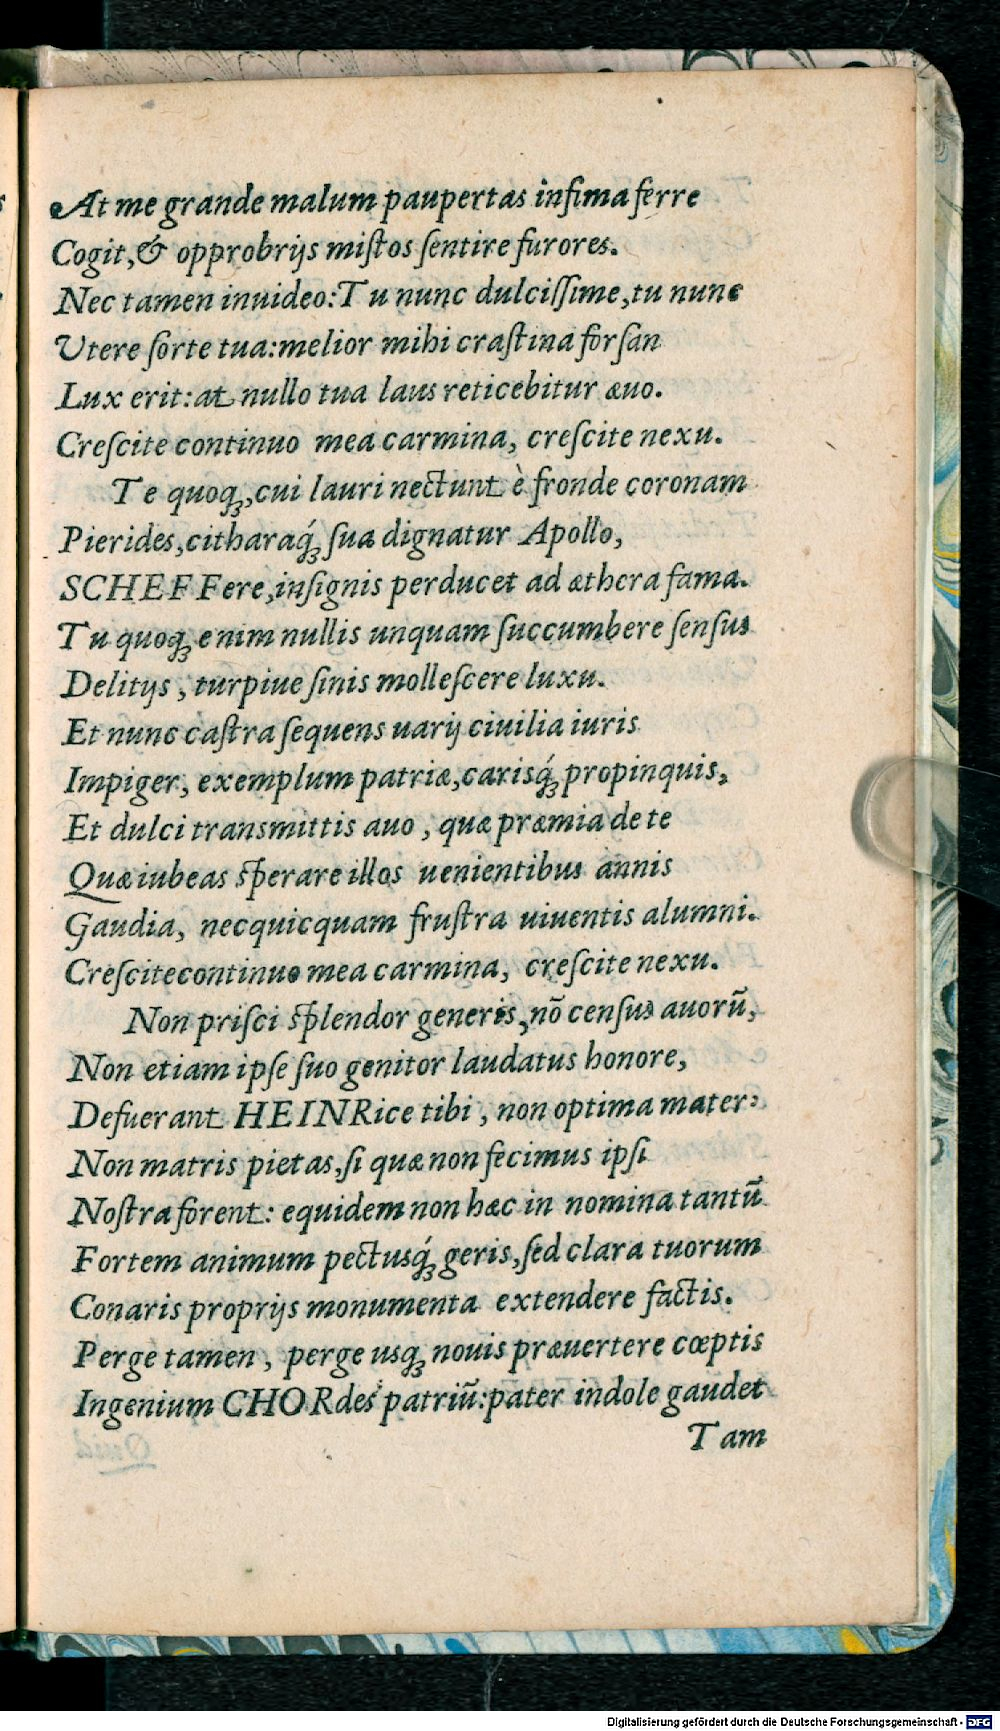 At me grande malum paupertas infima ferre
Cogit, & opprobrijs miſtos ſentire furores.
Nec tamen inuideo: Tu nunc dulciſſime, tu nunc
Vtere ſorte tua: melior mihi craſtina forſan
Lux erit: at nullo tua laus reticebitur æuo.
Creſcite continuo mea carmina, creſcite nexu.
Te quoq;, cui lauri nectunt è fronde coronam
Pierides, citharaq́; ſua dignatur Apollo,
SCHEFFere, inſignis perducet ad æthera fama.
Tu quoq; enim nullis unquam ſuccumbere ſenſus
Delitijs, turpiue ſinis molleſcere luxu.
Et nunc caſtra ſequens uarij ciuilia iuris
Impiger, exemplum patriæ, carisq́; propinquis,
Et dulci transmittis auo, quæ præmia de te
Quæ iubeas ſperare illos uenientibus annis
Gaudia, necquicquam fruſtra uiuentis alumni.
Creſcite continuo mea carmina, creſcite nexu.
Non priſci ſplendor generis, nō cenſus auorū,
Non etiam ipſe ſuo genitor laudatus honore,
Defuerant HEINRice tibi, non optima mater:
Non matris pietas, ſi quæ non fecimus ipſi
Noſtra forent: equidem non hæc in nomina tantū
Fortem animum pectusq́; geris, ſed clara tuorum
Conaris proprijs monumenta extendere factis.
Perge tamen, perge usq; nouis præuertere cœptis
Ingenium CHORdes patriū: pater indole gaudet
Tam
Digitalisierung gefördert durch die Deutsche Forschungsgemeinschaft - DFG